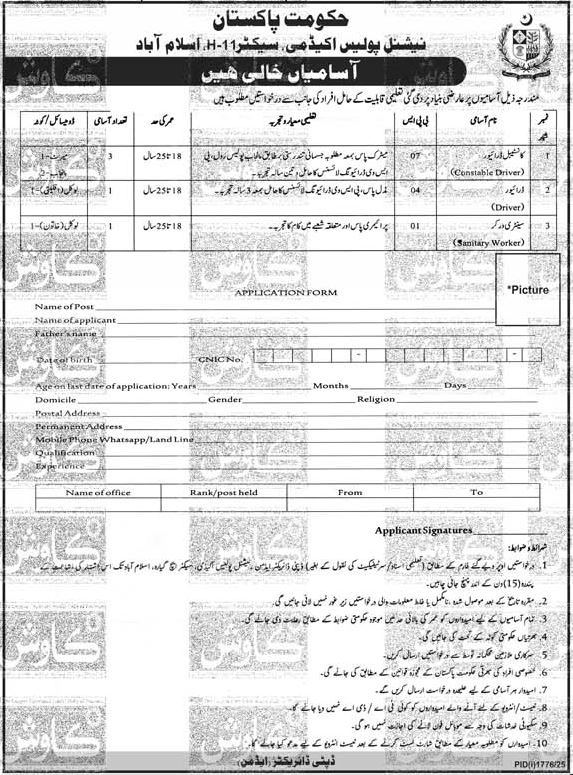 حکومت پاکستان
نیشنل پولیس اکیڈمی، سیکٹر H-11، اسلام آباد
آسامیاں خالی ہیں
مندرجہ ذیل آسامیوں پر عارضی بنیاد پر دی گئی تعلیمی قابلیت کے حامل افراد کی جانب سے درخواستیں مطلوب ہیں
نمبر شمار نام آسامی بی پی ایس تعلیمی معیار و تجربہ عمر کی حد تعداد آسامی ڈومیسائل / کوٹہ
1 کانسٹیبل ڈرائیور (Constable Driver) 07 میٹرک پاس بمعہ مطلوبہ جسمانی تندرستی بمطابق پنجاب پولیس رولز، پی ایس وی ڈرائیونگ لائسنس کا حامل و تین سالہ تجربہ۔ 18 تا 25 سال 3 میرٹ-1 پنجاب-2
2 ڈرائیور (Driver) 04 مڈل پاس، پی ایس وی ڈرائیونگ لائسنس کا حامل بمعہ 3 سالہ تجربہ۔ 18 تا 25 سال 1 لوکل (اقلیتی)-1
3 سینٹری ورکر (Sanitary Worker) 01 پرائمری پاس اور متعلقہ شعبے میں کام کا تجربہ۔ 18 تا 25 سال 1 لوکل (خاتون)-1
*Picture
APPLICATION FORM
Name of Post
Name of applicant
Father's name
Date of birth CNIC No.
Age on last date of application: Years Months Days
Domicile Gender Religion
Postal Address
Permanent Address
Mobile Phone Whatsapp/Land Line
Qualification
Experience
Name of office Rank/post held From To
Applicant Signatures
شرائط و ضوابط:
1۔ درخواستیں اوپر دیے گئے فارم کے مطابق (تعلیمی اسناد/سرٹیفکیٹ کی نقول کے بغیر) ڈپٹی ڈائریکٹر ایڈمن، نیشنل پولیس اکیڈمی، سیکٹر ایچ گیارہ، اسلام آباد تک اس اشتہار کی اشاعت کے
پندرہ (15) دن کے اندر پہنچ جانی چاہیں۔
2۔ مقررہ تاریخ کے بعد موصول شدہ، نامکمل یا غلط معلومات والی درخواستیں زیر غور نہیں لائی جائیں گی۔
3۔ تمام آسامیوں کے لیے امیدواروں کو عمر کی بالائی حد میں موجود حکومتی ضوابط کے مطابق رعایت دی جائے گی۔
4۔ بھرتیاں حکومتی کوٹہ کے تحت کی جائیں گی۔
5۔ سرکاری ملازمین محکمانہ توسط سے درخواستیں ارسال کریں۔
6۔ خصوصی افراد کی بھرتی حکومت پاکستان کے مجوزہ قوانین کے مطابق کی جائے گی۔
7۔ امیدوار ہر آسامی کے لیے علیحدہ درخواست ارسال کریں گے۔
8۔ ٹیسٹ/انٹرویو کے لئے آنے والے امیدواروں کو کوئی ٹی اے / ڈی اے نہیں دیا جائے گا۔
9۔ سکیورٹی خدشات کی وجہ سے موبائل فون لانے کی اجازت نہیں ہو گی۔
10۔ امیدواروں کو مطلوبہ معیار کے مطابق شارٹ لسٹ کرنے کے بعد ٹیسٹ انٹرویو کے لیے مدعو کیا جائے گا۔
ڈپٹی ڈائریکٹر (ایڈمن)
PID(I)1776/25
کاوش